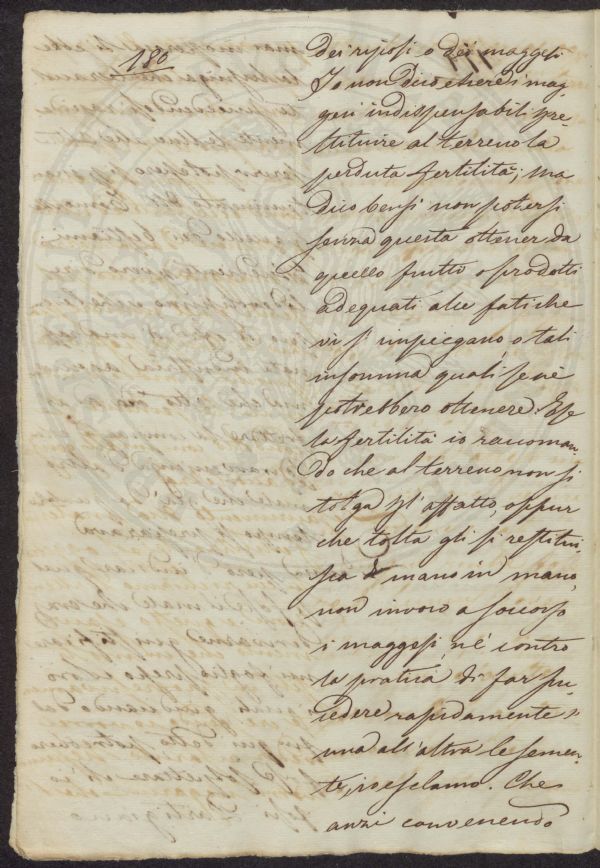 180
dei riposi o dei maggesi
Io non dico che resi mag-
gesi indispensabili pre-
stituire al terreno la
perduta fertilità; ma
dico bensì non potersi
senza questa ottener da
quello frutto o prodotti
adequati alle fatiche
vi s' impiegano, o tali
insomma quali se ne
potrebbero ottenere. E se
la fertilità io raccoman-
do che al terreno non si
tolga affatto, oppur
che tolta gli si restitui-
sca di mano in mano,
non invoco a soccorso
i maggesi, né contro
la pratica di far su-
cedere rapidamente
una all' altra le semen-
te, io esclamo. Che
anzi convenendo